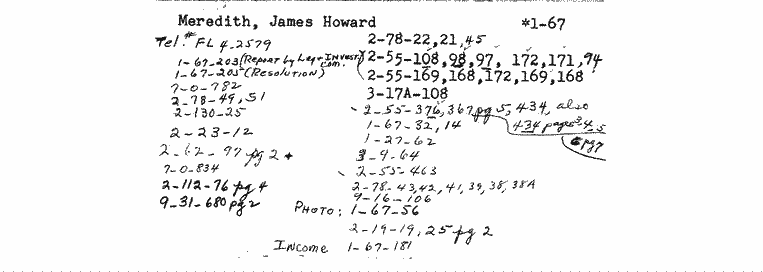 Meredith, James Howard *1-67
Tel.# FL 4-2579
1-67-203 (Report by Leg + Invest. Com.)
1-67-205 (Resolution)
7-0-782
2-78-49, 51
2-130-25
2-23-12
2-62-97 pg 2 *
7-0-834
2-112-76 pg 4
9-31-680 pg 2
2-78-22,21,45
2-55-108,98,97, 172,171,94
2-55-169,168,172,169,168
3-17A-108
2-55-376, 367 pg 5, 434, also
434 pages 3,4,5
6 pg 7
1-67-32, 14
1-27-62
3-9-64
2-55-463
2-78-43,42, 41, 39, 38, 38A
9-16-106
Photo: 1-67-56
2-19-19, 25 pg 2
Income 1-67-181